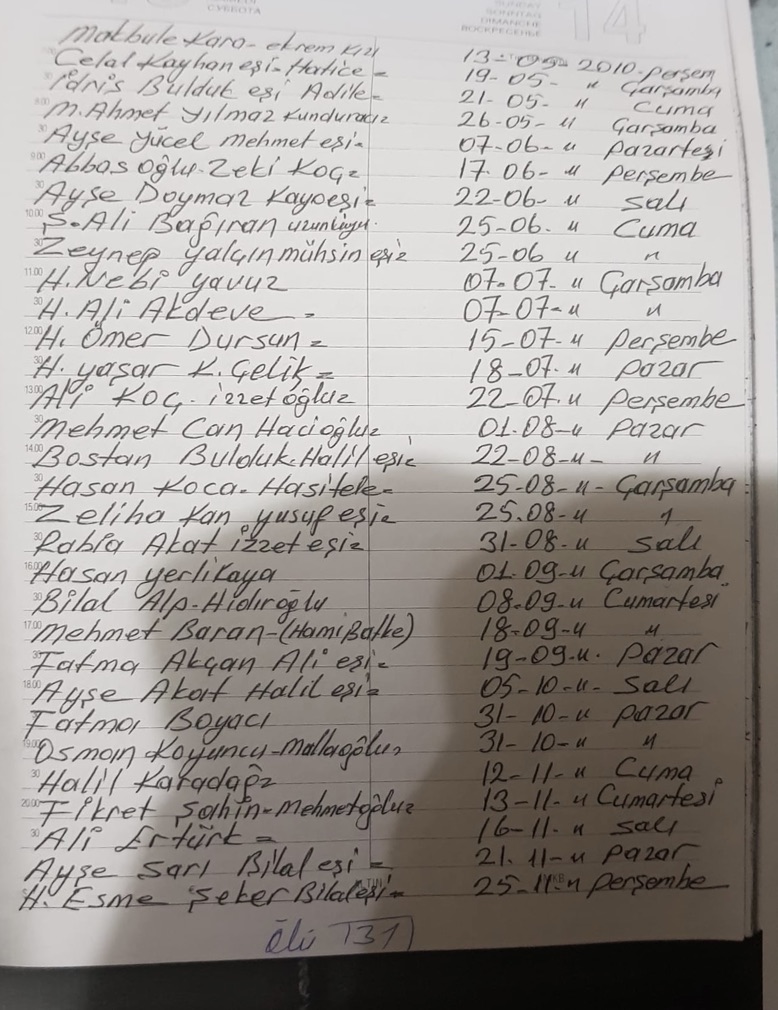 СУББОТА
SUNDAY
SONNTAG
DIMANCHE
ВОСКРЕСЕНЬЕ
14
Makbule Kara- ekrem Kızı 13-05-2010-perşem
Celal Kayhan eşi-Hatice= 19-05- " Çarşamba
İdris Bulduk eşi Adile= 21-05- " Cuma
8.00 M.Ahmet Yılmaz Kunduracız 26-05-" Çarşamba
30 Ayşe yücel mehmet eşi= 07-06-" pazartesi
9.00 Abbas oğlu-Zeki Koç= 17.06-" perşembe
30 Ayşe Doymaz Kayaeşi= 22-06- " salı
10.00 Ş.Ali Bağıran uzunkuyu. 25-06. " Cuma
30 Zeynep yalçın mühsin eşi= 25-06 " "
11.00 H.Nebi yavuz 07-07-" Çarşamba
30 H. Ali Akdeve = 07-07-" "
12.00 H. Ömer Dursun = 15-07-" perşembe
30 H. yaşar K. Çelik= 18-07-" pazar
13.00 Ali Koç. izzetoğlu= 22-07." perşembe
30 Mehmet Can Hacioğlu= 01-08-" pazar
14.00 Bostan Bulduk.Halil eşi= 22-08-"- "
30 Hasan Koca.Hasitele= 25-08-"-Çarşamba=
15.00 Zeliha Kan yusuf eşi= 25.08-" "
30 Rabia Akat izzet eşi= 31-08-" salı
16.00 Hasan yerlikaya 01.09-" Çarşamba
30 Bilal Alp-Hıdıroğlu 08-09-" Cumartesi
17.00 Mehmet Baran-(Hamişalke) 18-09-" "
30 Fatma Akçan Ali eşi= 19-09-". pazar
18.00 Ayşe Akat Halil eşi= 05-10-"- salı
Fatma Boyacı 31-10-" pazar
19.00 Osman Koyuncu-Mollaoğlu= 31-10-" "
30 Halil Karadağ= 12-11-" Cuma
20.00 Fikret şahin-Mehmetoğlu= 13-11-" Cumartesi
30 Ali Ertürk= 16-11-" salı
Ayşe sarı Bilal eşi= 21.11-" pazar
H. Esme şeker Bilaleşi= 25-11-" perşembe
ölü (31)